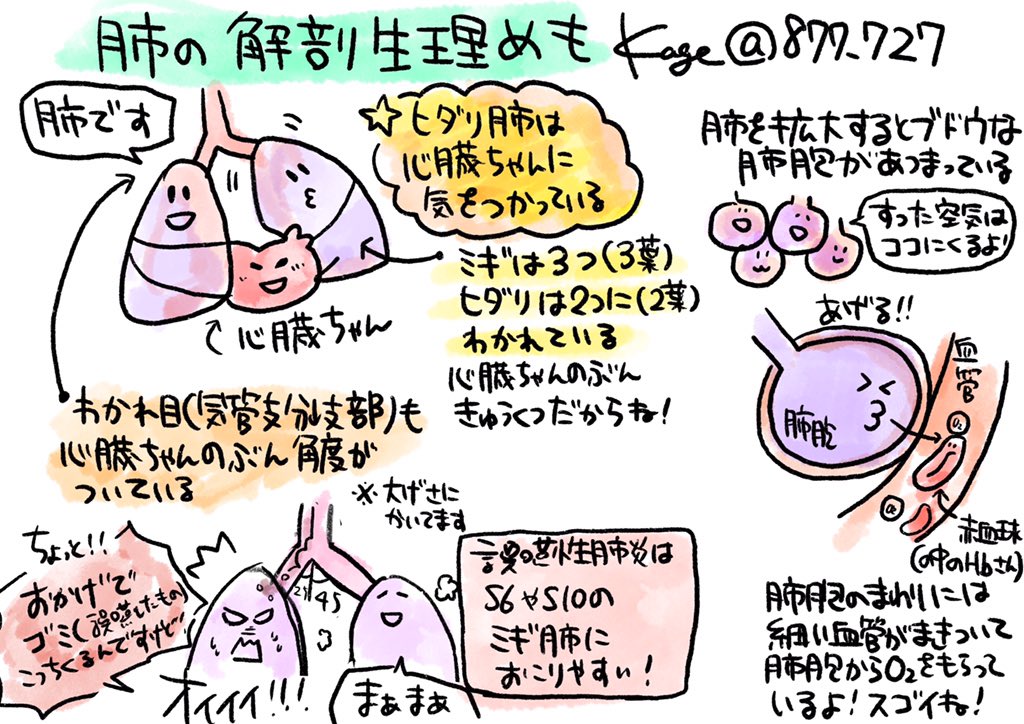 肺の解剖生理めも Kage@877_727
肺です
☆ヒダリ肺は
心臓ちゃんに
気をつかっている
ミギは3つ(3葉)
ヒダリは2つに(2葉)
わかれている
心臓ちゃんのぶん
きゅうくつだからね!
心臓ちゃん
わかれ目(気管支分岐部)も
心臓ちゃんのぶん角度が
ついている
※大げさに
かいてます
ちょっと!!
おかげで
ゴミ(誤嚥したもの)
こっちくるんですけど
25 45
オイィィ!!!
まぁまぁ
誤嚥性肺炎は
S6やS10の
ミギ肺に
おこりやすい!
肺を拡大するとブドウな
肺胞があつまっている
すった空気は
ココにくるよ!
あげる!!
肺胞
血管
O₂
O₂
赤血球
(の中のHbさん)
肺胞のまわりには
細い血管がまきついて
肺胞からO₂をもらって
いるよ!スゴイね!